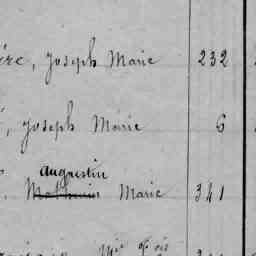 ère, Joseph Marie 232
, Joseph Marie 6
Augustin
Mathurin Marie 341